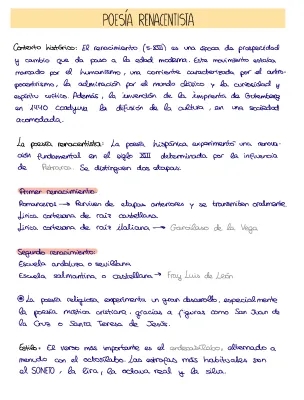 POESÍA RENACENTISTA
Contexto histórico: El renacimiento (s.XVI) es una época de prosperidad
y cambio que da paso a la edad moderna. Este movimiento estaba
marcado por el humanismo, una corriente caracterizada por el antro-
pocentrismo, la admiración por el mundo clásico y la curiosidad y
espíritu crítico. Además, la invención de la imprenta de Gutemberg
en 1440 la difusión de la cultura, en una sociedad
acomodada.
La poesía renacentista: La poesía hispánica experimentó una renova-
ción fundamental en el siglo XVI determinada por la influencia
de Petrarca. Se distinguen dos etapas.
Primer renacimiento
Romanceros → Perviven de etapas anteriores y se transmiten oralmente
Lírica cortesana de raíz castellana
Lírica cortesana de raíz italiana → Garcilaso de la Vega
Segundo renacimiento:
Escuela andaluza o sevillana
Escuela salmantina o castellana → Fray Luis de León
La poesía religiosa experimenta un gran desarrollo, especialmente
la poesía mística cristiana, gracias a figuras como San Juan de
la Cruz o Santa Teresa de Jesús.
Estilo: El verso más importante es el endecasílabo, alternado a
menudo con el octosílabo. Las estrofas más habituales son
el SONETO, la lira, la octava real y la silva.